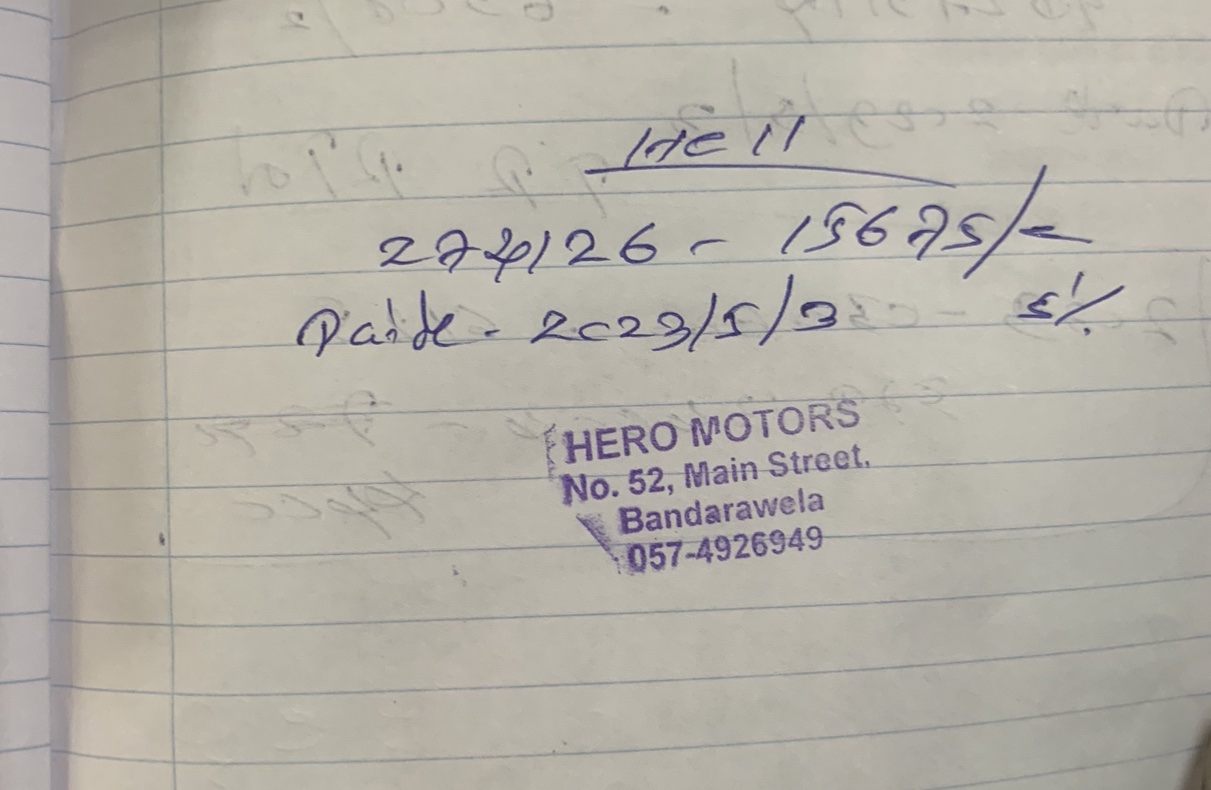 HE 11
274126 - 15675/=
Paide - 2023/5/3 5%
HERO MOTORS
No. 52, Main Street,
Bandarawela
057-4926949